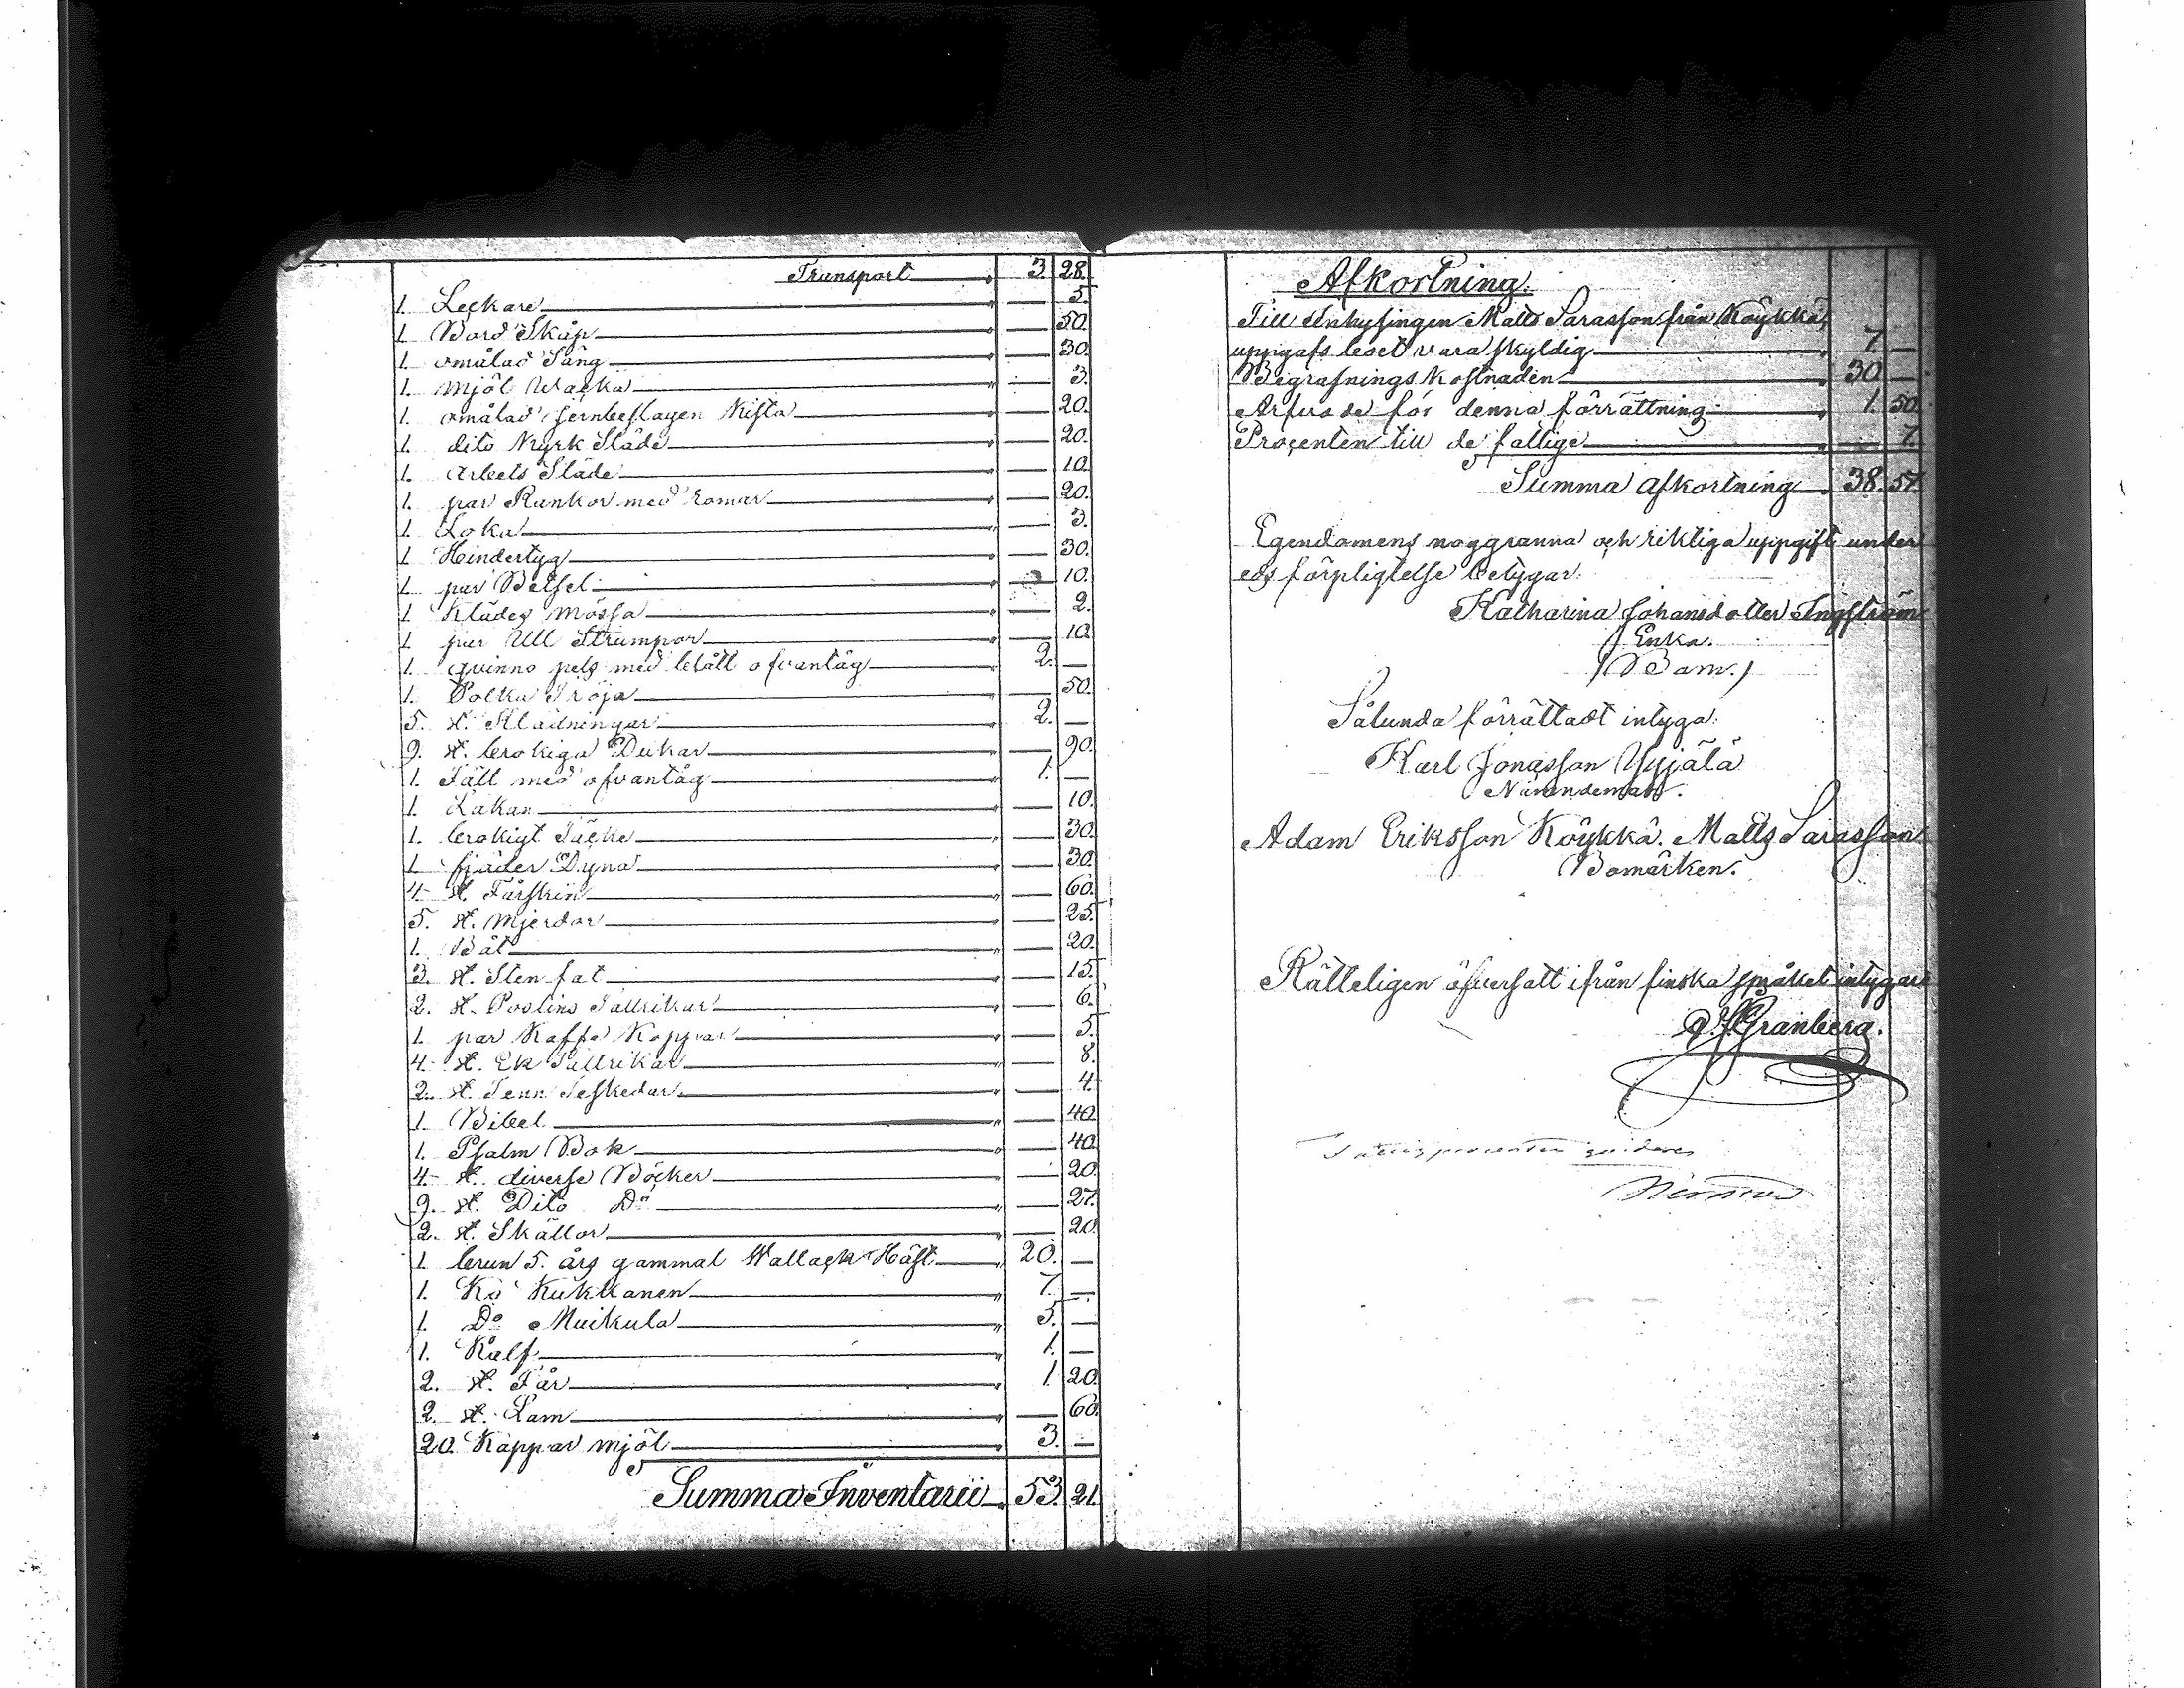 Transport 3. 28.
1. Leckare — 5.
1. Bord Skåp — 50.
1. omålad Säng — 30.
1. Mjöl Wacka — 3.
1. omålad jernbeslagen Kista — 20.
1. dito Kyrk Släde — 20.
1. Arbets Släde — 10.
1. par Runkor med romar — 20.
1. Loka — 3.
1. Hindertyg — 30.
1. par Betsel — 10.
1. Klädes Mössa — 2.
1. par Ull Strumpor — 10.
1. qvinno pels med blått ofvantåg 2. —
1. Polka Tröja — 50.
5. st. Klädningar 2. —
9. st. brokiga Dukar — 90.
1. Fäll med ofvantåg 1. —
1. Lakan — 10.
1. brokigt Täcke — 30.
1. fjäder Dyna — 30.
4. st. Fårskin — 60.
5. st. Mjerdor — 25.
1. Båt — 20.
3. st. Sten fat — 15.
2. st. Poslins Tallrikar — 6.
1. par Kaffe Koppar — 5.
4. st. Ek Tallrikar — 8.
2. st. Tenn Teskedar — 4.
1. Bibel — 40.
1. Psalm Bok — 40.
4. st. diverse Böcker — 20.
9. st. Dito Do — 27.
2. st. Skällor — 20.
1. brun 5. års gammal Wallack Häst 20. —
1. Ko Kukkanen 7. —
1. Do Muikula 5. —
1. Kalf 1. —
2. st. Får 1. 20.
2. st. Lam — 60.
20. Kappar mjöl 3. —
Summa Inventarii 53. 21.
Afkortning.
Till Inhysingen Matts Sarasson från Köykkä,
uppgafs boet vara skyldig 7. —
Begrafnings Kostnaden 30 —
Arfvode för denna förrättning 1. 50.
Procenten till de fattige — 7.
Summa afkortning 38. 57.
Egendomens noggranna och riktiga uppgift under
eds förpligtelse betygar.
Katharina Johansdotter Ingström
Enka.
(Bom.)
Sålunda förrättadt intyga:
Karl Jonasson Yrjälä
Nämndeman.
Adam Eriksson Köykkä. Matts Sarasson
Bomärken.
Rätteligen öfversatt ifrån finska språket intygar
Granberg.